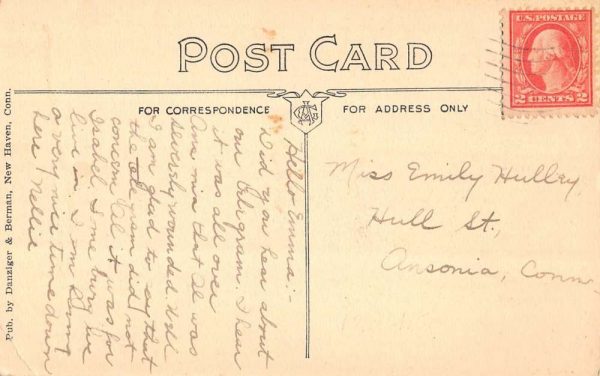 POST CARD
U.S. POSTAGE
2 CENTS 2
FOR CORRESPONDENCE
FOR ADDRESS ONLY
Pub. by Danziger & Berman, New Haven, Conn.
Hello Emma:-
Did you hear about
our telegram. I hear
it was all over
that Al was
severely wounded. Well
I am glad to say that
the did not
concern Al it was for
Isabel
live in. I am having
a very nice time down
here Nellie
Miss Emily Hulley
Hull St.,
Ansonia, Conn.